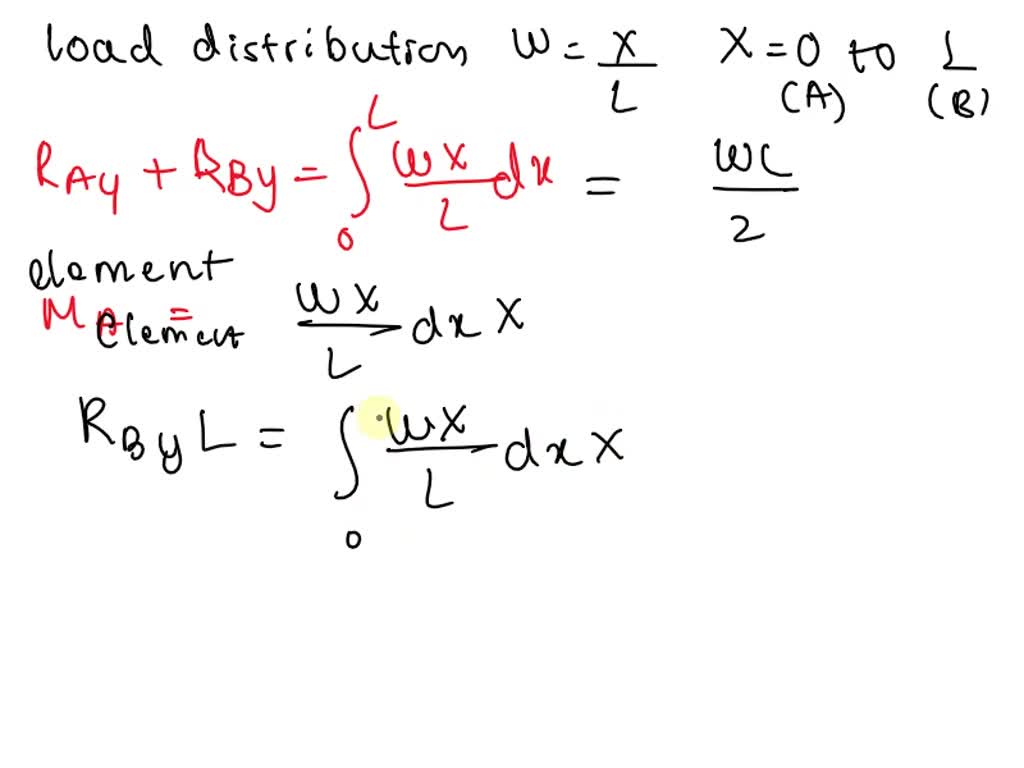 load distribution W = X/L X = 0 to L
(A) (B)
RAy + RBy = ∫₀ᴸ wx/L dx = WL/2
element
MA =
element wx/L dx X
RBy L = ∫₀ wx/L dx X